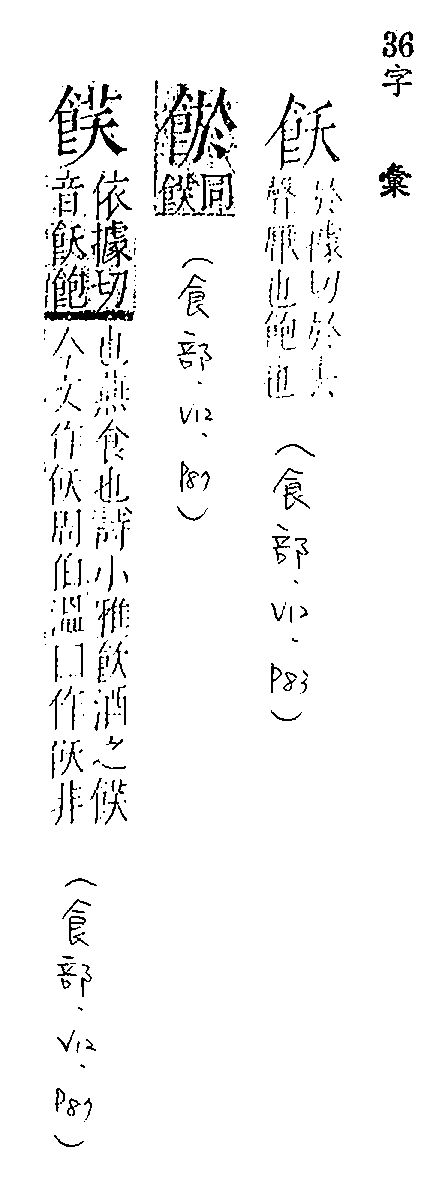 36字彙
飫
於據切於去
聲厭也飽也
(食部.V12.P83)
同
(食部.V12.P87)
依據切
音飫飽
也燕食也詩小雅飲酒之
今文作飫周伯溫曰作飫非
(食部.V12.P87)